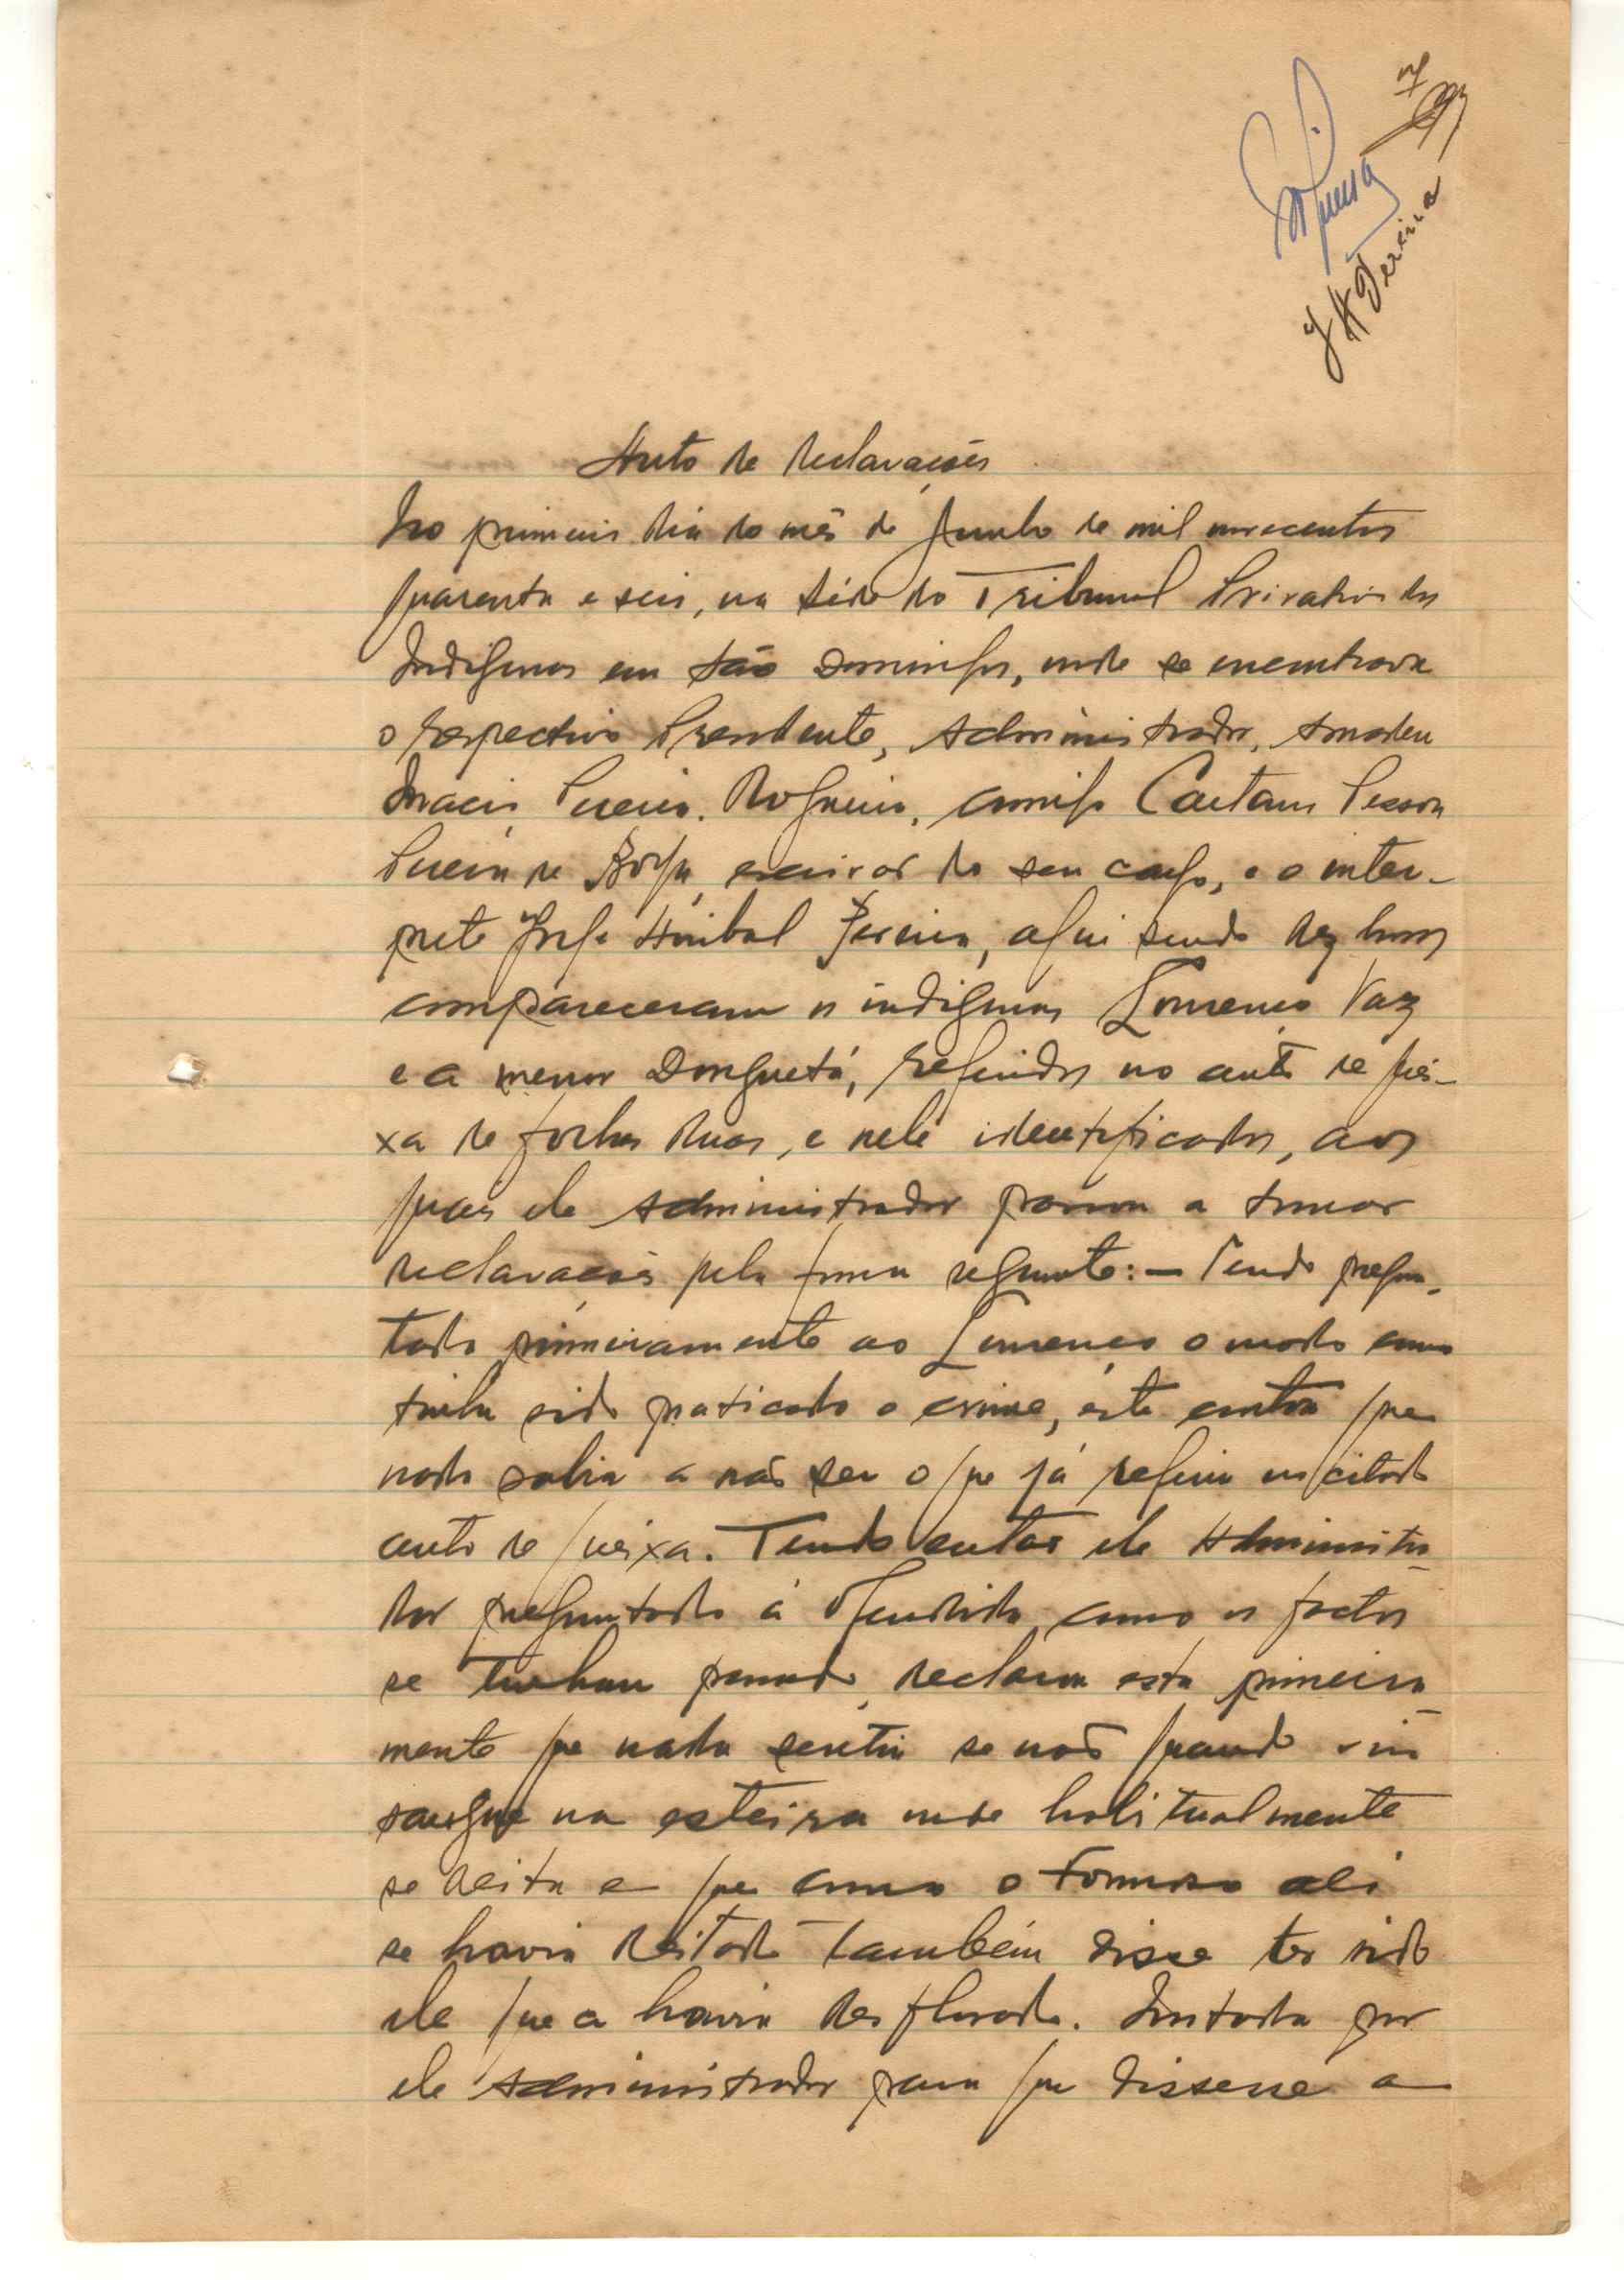 7
JHPereira
Auto de declarações
No primeiro dia do mês de Junho de mil novecentos
quarenta e seis, na séde do Tribunal Privativo dos
Indigenas em São Domingos, onde se encontrava
o respectivo Presidente, Administrador, Amadeu
Inacio Pereira Nogueira, comigo Caetano Pessoa
Pereira de Borja, escrivão do seu cargo, e o inter-
prete Jorge Hanibal Pereira, aqui sendo dez horas
compareceram os indigenas Lourenço Vaz
e a menor Donguetá, referidos no auto de quei-
xa de folhas duas, e nele identificados, aos
quais ele Administrador passou a tomar
declarações pela forma seguinte: — Tendo pregun-
tado primeiramente ao Lourenço o modo como
tinha sido praticado o crime, êste contou que
nada sabia a não ser o que já referiu no citado
auto de queixa. Tendo então ele Administra-
dor preguntado á ofendida como os factos
se tinham passado, declarou esta primeira-
mente que nada sentiu se não quando viu
sangue na esteira onde habitualmente
se deita e que como o Formoso ali
se havia deitado também disse ter sido
ele que a havia desflorado. Instada por
ele Administrador para que dissesse a